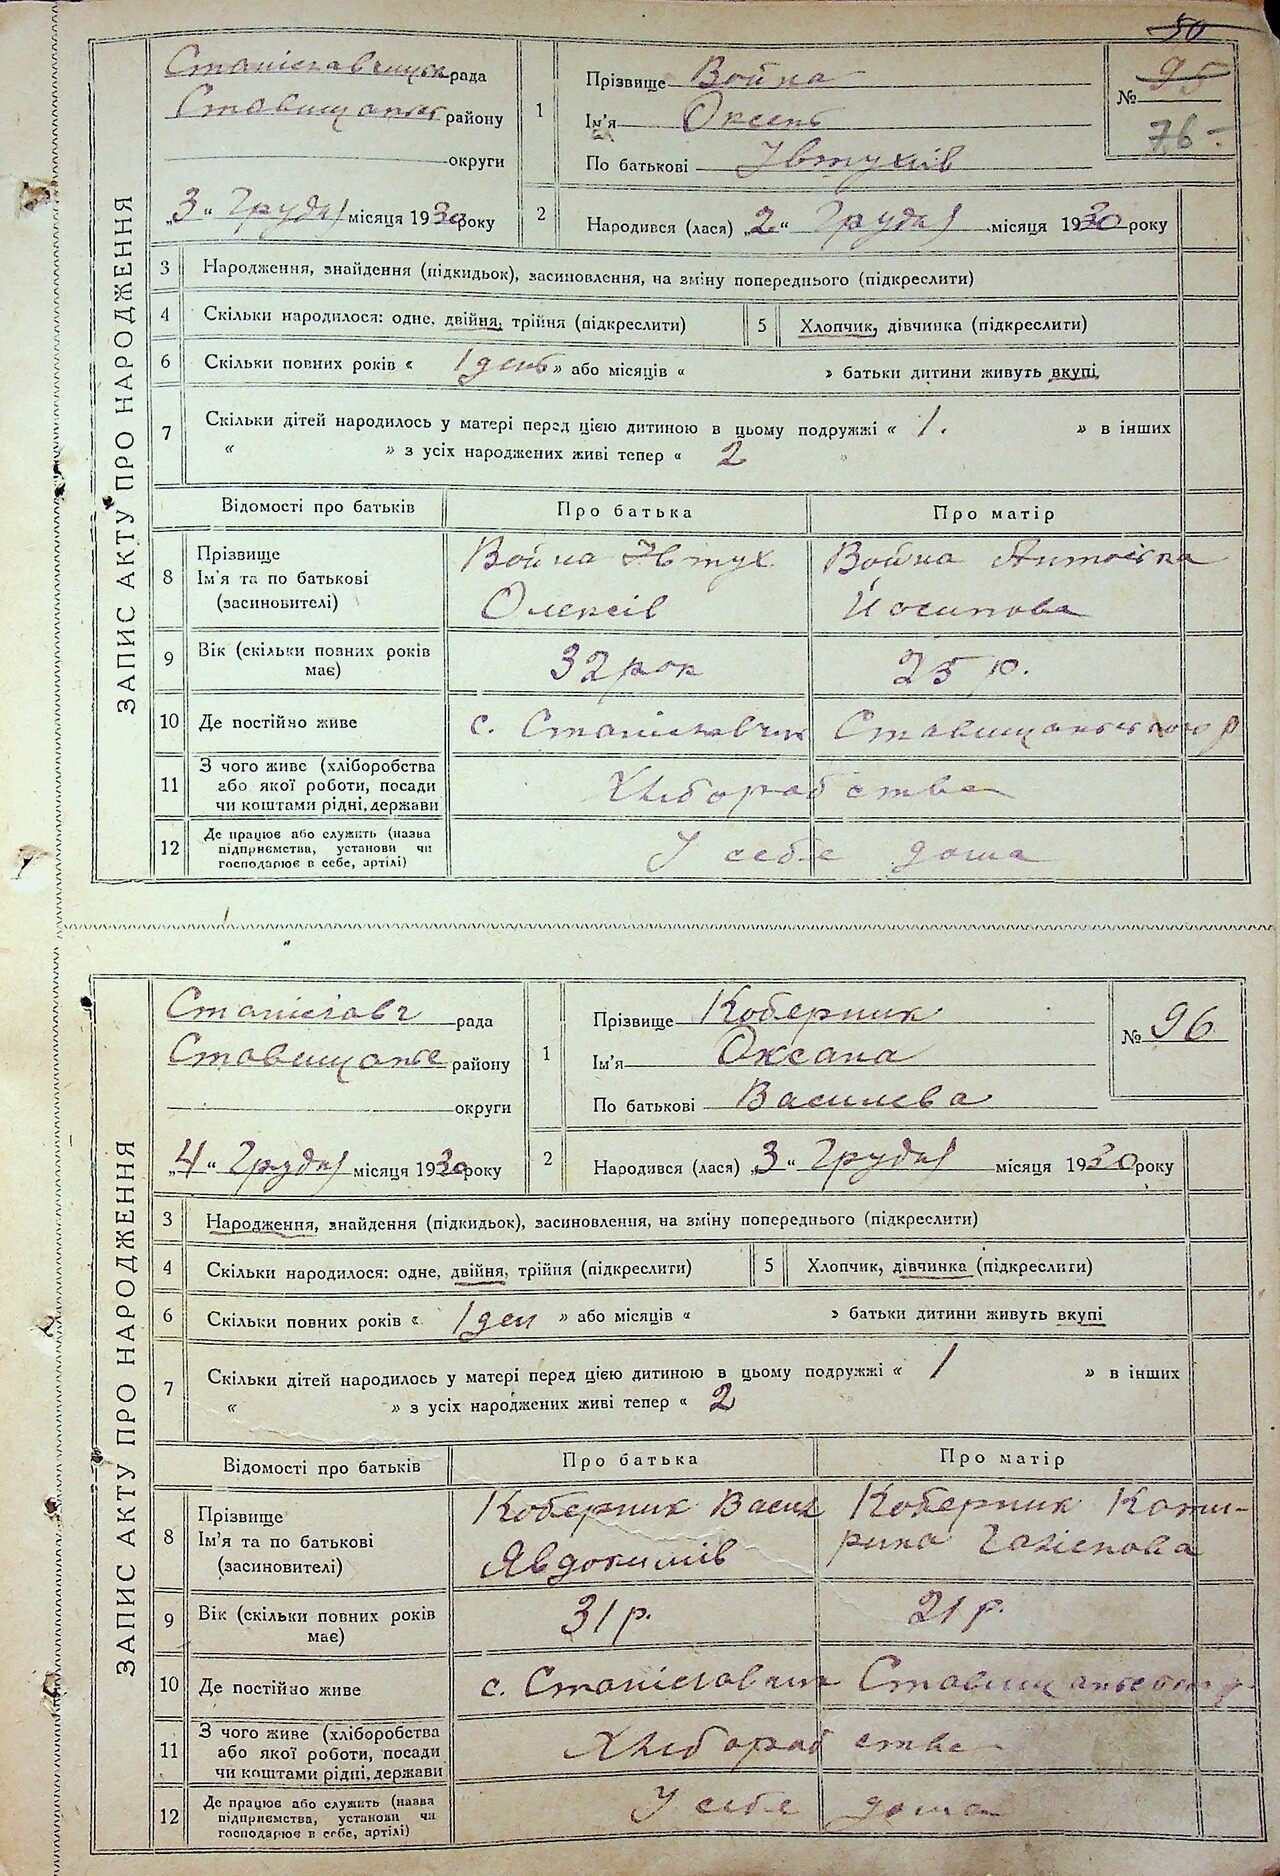 50
ЗАПИС АКТУ ПРО НАРОДЖЕННЯ
Станіславчицька рада
Ставищанськ району
округи
„3“ Грудня місяця 1930 року
1
Прізвище Война
Ім'я Оксент
По батькові Івтухів
№ 95
76
2
Народився (лася) „2“ Грудня місяця 1930 року
3 Народження, знайдення (підкидьок), засиновлення, на зміну попереднього (підкреслити)
4 Скільки народилося: одне, двійня, трійня (підкреслити)
5 Хлопчик, дівчинка (підкреслити)
6 Скільки повних років « 1 день » або місяців « » батьки дитини живуть вкупі
7 Скільки дітей народилось у матері перед цією дитиною в цьому подружжі « 1. » в інших
« » з усіх народжених живі тепер « 2 »
Відомості про батьків Про батька Про матір
8 Прізвище
Ім'я та по батькові
(засиновителі)
Война Івтух
Олексів
Война Антоніна
Йосипова
9 Вік (скільки повних років
має)
32 рок 25 р.
10 Де постійно живе с. Станіславчик Ставищанського р
11 З чого живе (хліборобства
або якої роботи, посади
чи коштами рідні, держави
Хліборобства
12 Де працює або служить (назва
підприємства, установи чи
господарює в себе, артілі)
У себе дома
ЗАПИС АКТУ ПРО НАРОДЖЕННЯ
Станіславч рада
Ставищанс району
округи
„4“ Грудня місяця 1930 року
1
Прізвище Коберник
Ім'я Оксана
По батькові Василева
№ 96
2
Народився (лася) „3“ Грудня місяця 1930 року
3 Народження, знайдення (підкидьок), засиновлення, на зміну попереднього (підкреслити)
4 Скільки народилося: одне, двійня, трійня (підкреслити)
5 Хлопчик, дівчинка (підкреслити)
6 Скільки повних років « 1 ден » або місяців « » батьки дитини живуть вкупі
7 Скільки дітей народилось у матері перед цією дитиною в цьому подружжі « 1 » в інших
« » з усіх народжених живі тепер « 2
Відомості про батьків Про батька Про матір
8 Прізвище
Ім'я та по батькові
(засиновителі)
Коберник Васил
Явдокимів
Коберник Кати-
рина
9 Вік (скільки повних років
має)
31 р. 21 р.
10 Де постійно живе с. Станіславчик Ставищанського р.
11 З чого живе (хліборобства
або якої роботи, посади
чи коштами рідні, держави
Хліборобства
12 Де працює або служить (назва
підприємства, установи чи
господарює в себе, артілі)
У себе дома